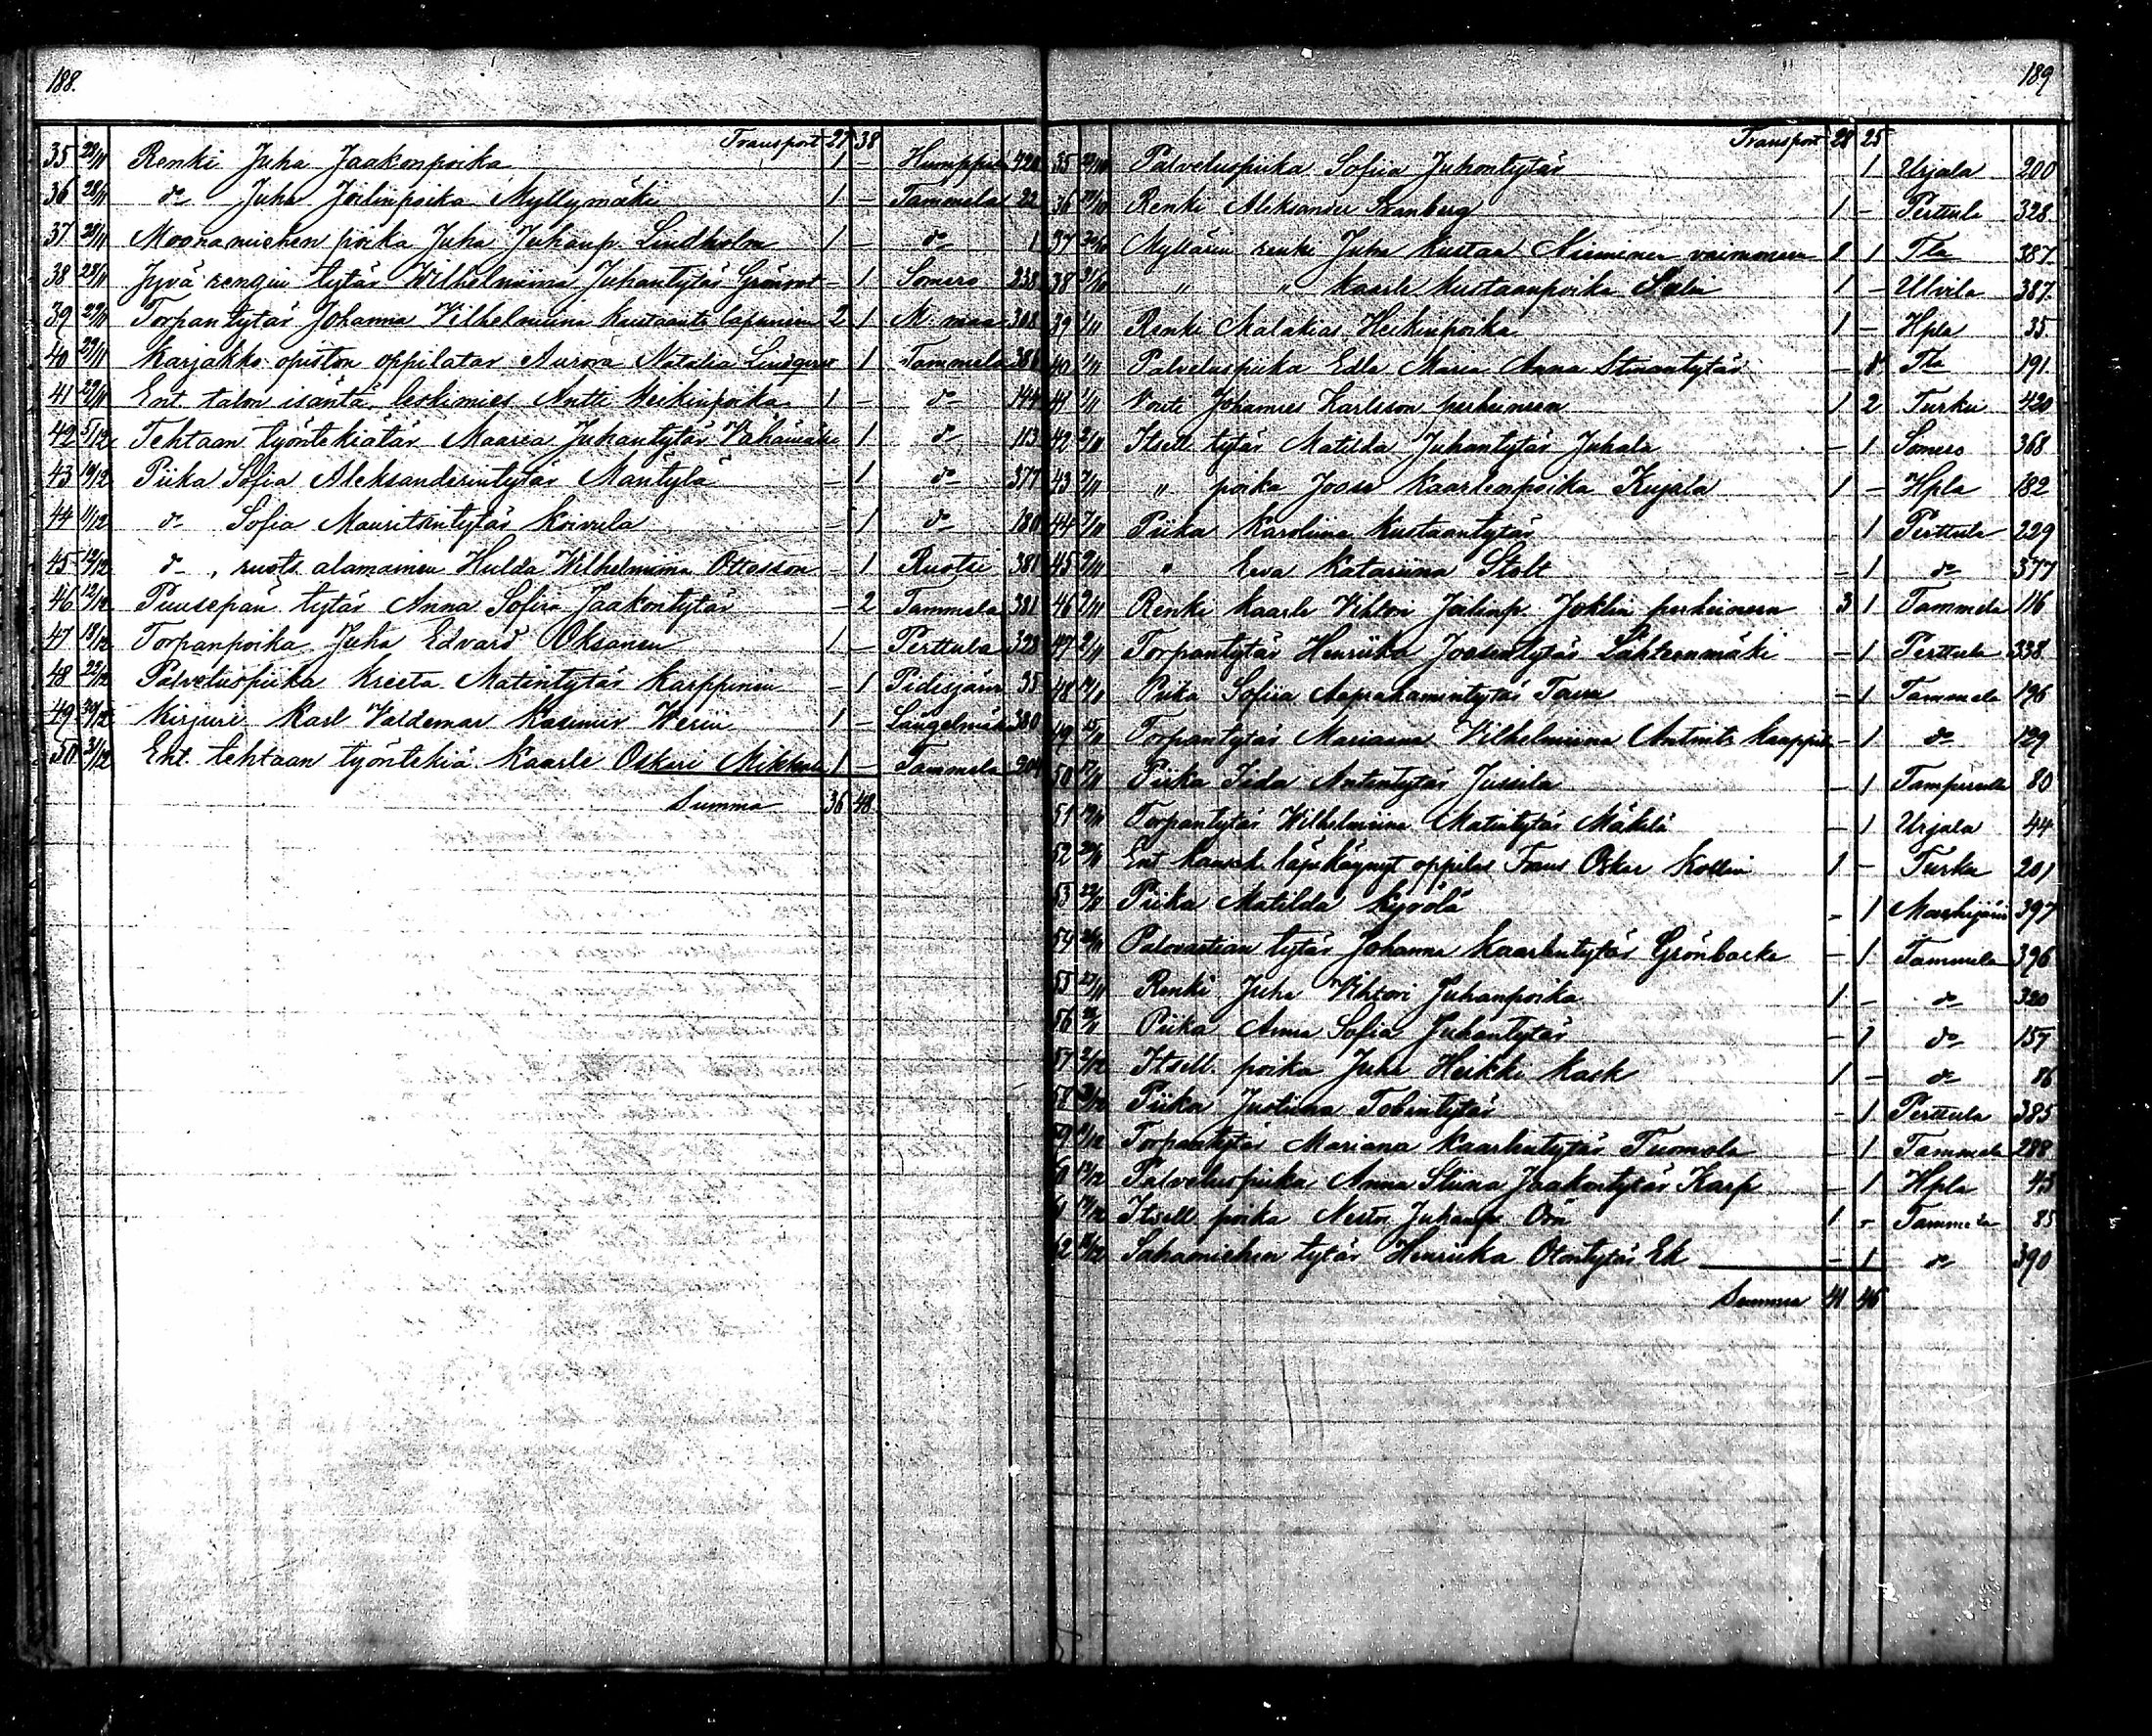 188.
Transport 27 38
35 28/11 Renki Juha Jaakonpoika 1 – Humppila 420
36 28/11 do Juha Joilinpoika Myllymäki 1 – Tammela 22
37 28/11 Moonamiehen poika Juha Juhanp. Lindholm 1 – do 1
38 28/11 Jyvä rengin tytär Wilhelmiina Juhantytär Grönroot – 1 Somero 238
39 29/11 Torpantytär Johanna Vilhelmiina Kustaant. 2 1 M: maa 308
40 29/11 Karjakko opiston oppilatar Aurora Natalia Lindqvist 1 Tammela 386
41 29/11 Ent. talon isäntä, leskimies Antti Heikinpoika 1 – do 144
42 5/12 Tehtaan työntekiätär Maaria Juhantytär Vähämäki 1 do 113
43 10/12 Piika Sofia Aleksanderintytär Mäntylä – 1 do 377
44 11/12 do Sofia Mauritsintytär Koivula – 1 do 180
45 12/12 do, ruots. alamainen Hulda Wilhelmiina Ottosson – 1 Ruotsi 381
46 12/12 Puusepän tytär Anna Sofia Jaakontytär – 2 Tammela 381
47 18/12 Torpanpoika Juha Edvard Oksanen 1 – Perttula 328
48 22/12 Palveluspiika Kreeta Matintytär Karppinen – 1 Pidisjärvi 35
49 30/12 Kirjuri Karl Valdemar Kasimir Werin 1 – Längelmäki 380
50 31/12 Ent. tehtaan työntekiä Kaarle Oskari Mikkola 1 – Tammela 204
Summa 36 48
189
Transport 28 25
35 Palveluspiika Sofiia Juhontytär 1 Urjala 200
36 Renki Aleksander Granberg 1 – Perttula 328
37 Myllärin renki Juha Kustaa Nieminen vaimoneen 1 Tla 387
38 31/10 " " Kaarle Kustaanpoika Salin 1 – Ulvila 387
39 1/11 Renki Malakias Heikinpoika 1 – Hpla 35
40 1/11 Palveluspiika Edla Maria Anna Stiinantytär – Tla 191
41 1/11 Vouti Johannes Karlsson perheineen 1 2 Turku 420
42 2/11 Itsell. tytär Matilda Juhantytär Juhala – 1 Somero 368
43 7/11 " poika Joose Kaarlenpoika Kujala 1 – Hpla 182
44 7/11 Piika Karoliina Kustaantytär 1 Perttula 229
45 9/11 " Eeva Katariina Stolt – 1 do 377
46 9/11 Renki Kaarle Vihtori Joelinp. Joklin perheineen 3 1 Tammela 116
47 9/11 Torpantytär Henriika Joosentytär Lähteenmäki – 1 Perttula 338
48 Piika Sofiia Aaprahamintytär Tam – 1 Tammela 196
49 15/11 Torpantytär Mariana Vilhelmiina Antint. – 1 do 129
50 17/11 Piika Iida Antintytär Jussila – 1 80
51 19/11 Torpantytär Wilhelmiina Matintytär Mäkelä – 1 Urjala 44
52 20/11 Ent. kansk. läpikäynyt oppilas Frans Oskar Kollin 1 – Turku 201
53 22/11 Piika Matilda Kyrölä – 1 397
54 Palovartian tytär Johanna Kaarlentytär Grönbacka – 1 Tammela 396
55 Renki Juha Vihtori Juhanpoika 1 – do 320
56 Piika Anna Sofia Juhantytär – 1 do 157
57 2/12 Itsell. poika Juha Heikki Kask 1 – do 86
58 Piika Justiina Tobintytär – 1 Perttula 385
59 Torpantytär Mariana Kaarlentytär Tuomola – 1 Tammela 288
60 Palveluspiika Anna Stiina Jaakontytär Karp – 1 Hpla 45
61 Itsell. poika Nestor Juhanp. Orn 1 – Tammela 85
62 Sahamiehen tytär Henriika Otontytär Ek – 1 do 390
Summa 41 46